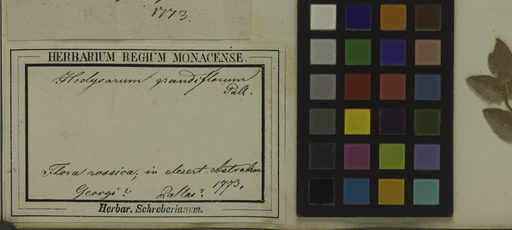 1773.
HERBARIUM REGIUM MONACENSE.
Hedysarum grandiflorum
Pall.
Flora rossica, in desert. Astrachan
Georgi? Pallas? 1773.
Herbar. Schreberianum.